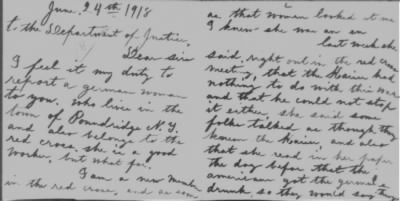 June. 24th 1918
to the Department of Justice,
Dear sir
I feel it my duty to
report a german woman
to you. who live in the
town of Poundridge N.Y.
and also belongs to the
red cross. she is a good
worker, but what for.
I am a new member
in the red cross, and as soon
as that woman looked at me
I knew she was an
last week she
said right out in the red cross
meeting, that the Kaiser had
nothing to do with this war
and that he could not stop
it either. she said some
folks talked as though they
knew the Kaiser, and also
that she read in her paper
the day before that the
americans got the germans
drunk, so they would say